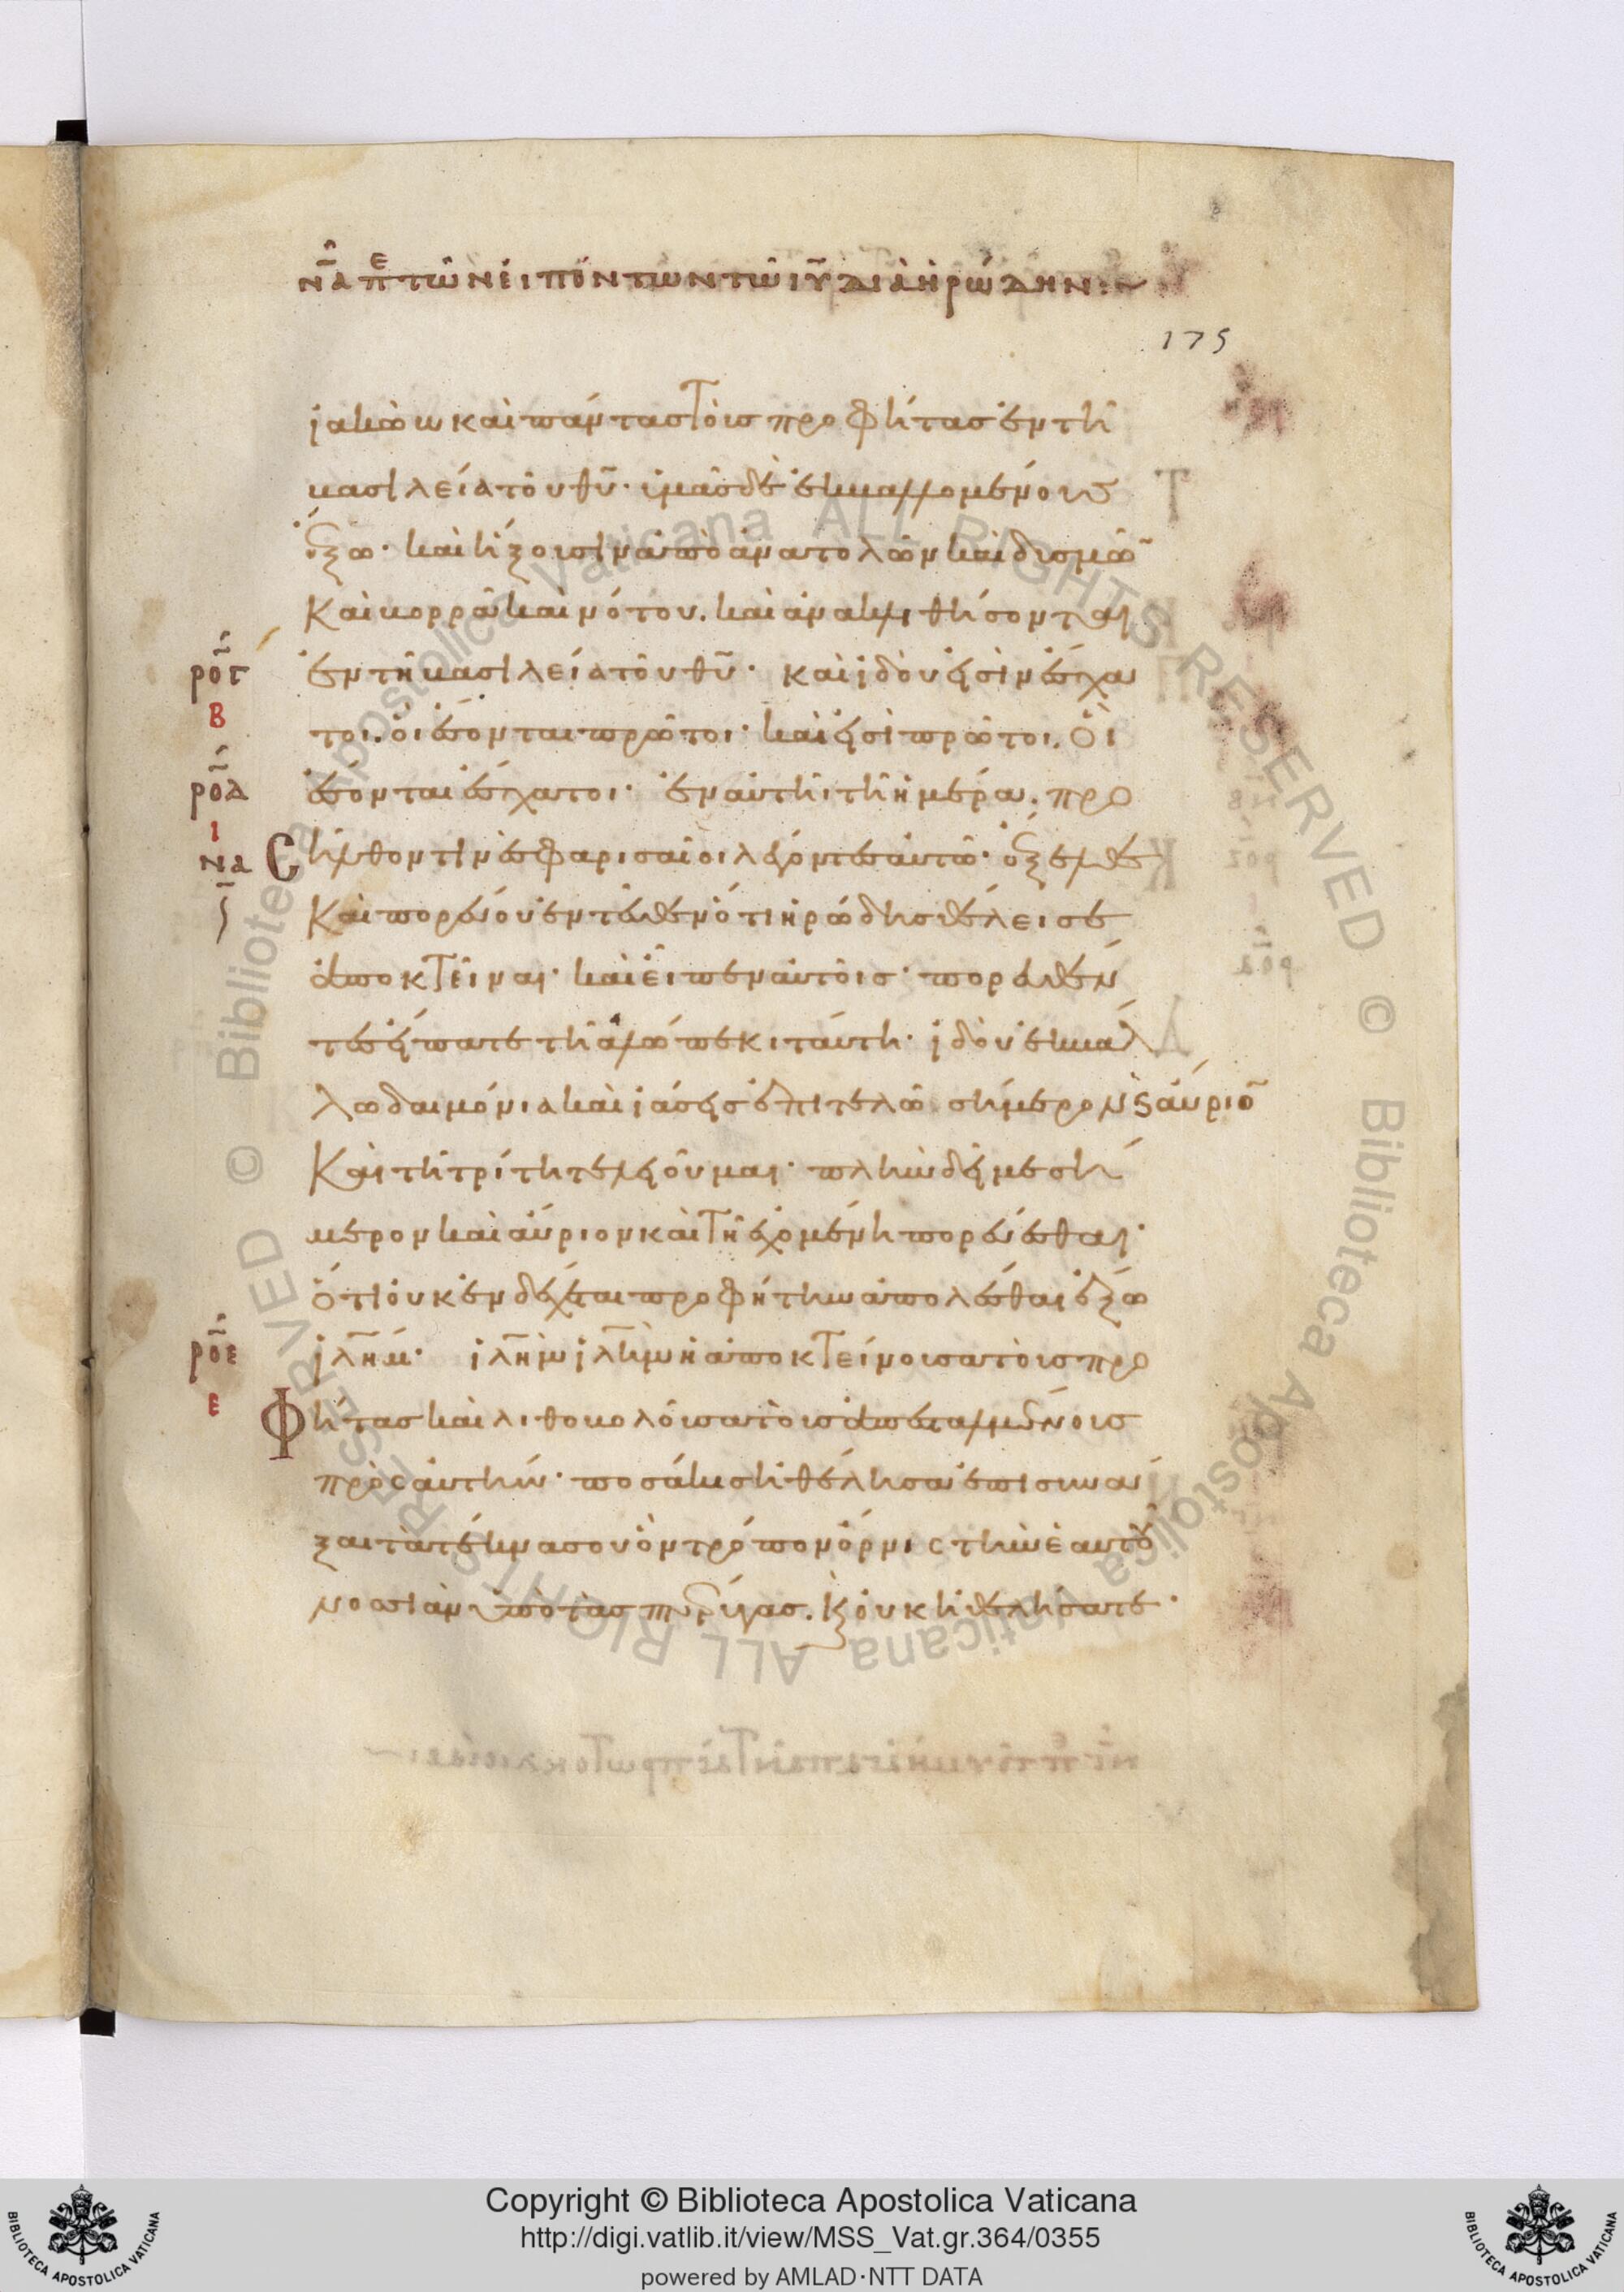 ν̅α̅ πε τῶν εἰπόντων τῶ ιυ̅ διὰ ἡρώδην:~
175
ἰακὼβ καὶ πάντας τοὺς προφήτας ἐν τῆ
βασιλεία τοῦ θυ̅· ὑμᾶς δὲ ἐκβαλλομένους
ἔξω· καὶ ἥξουσιν ἀπὸ ἀνατολῶν καὶ δυσμῶ̅
καὶ βορρᾶ καὶ νότου. καὶ ἀνακλιθήσονται
ρ̅ο̅γ̅ ἐν τῆ βασιλεία τοῦ θυ̅· καὶ ἰδοὺ εἰσὶν ἔσχα
Β
τοι. οἳ ἔσονται πρῶτοι· καὶ εἰσὶ πρῶτοι. οἳ
ρ̅ο̅δ̅ ἔσονται ἔσχατοι· ἐν αὐτῆ τῆ ἡμέρα. προ
Ι
να ς̅
σῆλθόν τινες φαρισαῖοι λέγοντες αὐτῶ· ἔξελθε
καὶ πορεύου ἐντεῦθεν ὅτι ἡρώδης θέλει σε
ἀποκτεῖναι· καὶ εἶπεν αὐτοῖς· πορευθέν
τες εἴπατε τῆ ἀλώπεκι ταύτη· ἰδοὺ ἐκβάλ
λω δαιμόνια καὶ ἰάσεις ἐπιτελῶ σήμερον ϗ αὔριο̅
καὶ τῆ τρίτη τελειοῦμαι· πλὴν δεῖ με σή
μερον καὶ αὔριον καὶ τῆ ἐχομένη πορεύεσθαι·
ὅτι οὐκ ἐνδέχεται προφήτην ἀπολέσθαι ἔξω
ρ̅ο̅ε̅ ἰλη̅μ· ἰλη̅μ ἰλη̅μ ἡ ἀποκτείνουσα τοὺς προ
Ε
φήτας καὶ λιθοβολοῦσα τοὺς ἀπεσταλμένους
πρὸς αὐτήν· ποσάκις ἠθέλησα ἐπισυνά
ξαι τὰ τέκνα σου ὃν τρόπον ὄρνις τὴν ἑαυτοῦ
νοσσιὰν ὑπὸ τὰς πτέρυγας. ϗ οὐκ ἠθελήσατε·
Copyright © Biblioteca Apostolica Vaticana
http://digi.vatlib.it/view/MSS_Vat.gr.364/0355
powered by AMLAD·NTT DATA